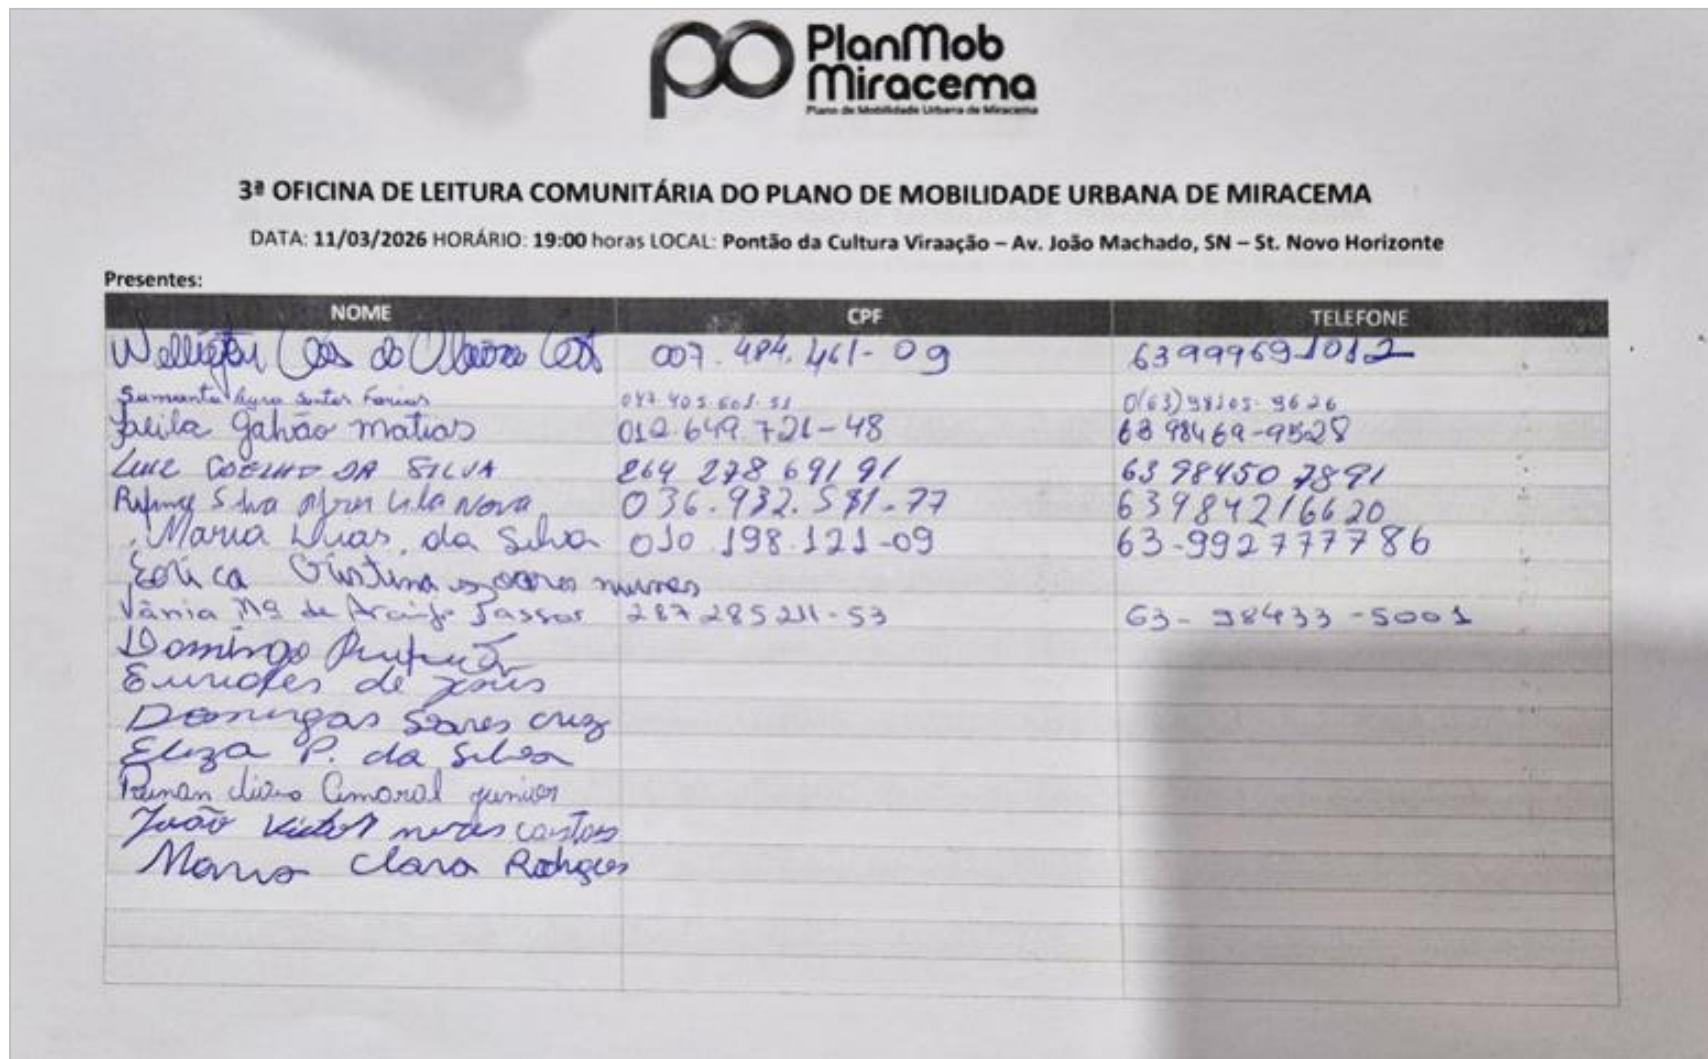 PlanMob
Miracema
Plano de Mobilidade Urbana de Miracema
3ª OFICINA DE LEITURA COMUNITÁRIA DO PLANO DE MOBILIDADE URBANA DE MIRACEMA
DATA: 11/03/2026 HORÁRIO: 19:00 horas LOCAL: Pontão da Cultura Viraação – Av. João Machado, SN – St. Novo Horizonte
Presentes:
NOME CPF TELEFONE
007.484.461-09 63999691012
Santos Farias
Galvão Matias 012.649.721-48 63 98469-9528
LUIZ COELHO DA SILVA 264 278 691 91 63 98450 7891
Silva Vila Nova 036.932.581-77 63984216620
Maria Dias da Silva 010.198.121-09 63-992777786
Cristina Soares nunes
Vânia Mª de Araújo Passos 287285211-53 63-98433-5001
Domingo
Eurides de Jesus
Domingas Soares cruz
Eliza P. da Silva
Amaral junior
João Victor
Maria Clara Rodrigues